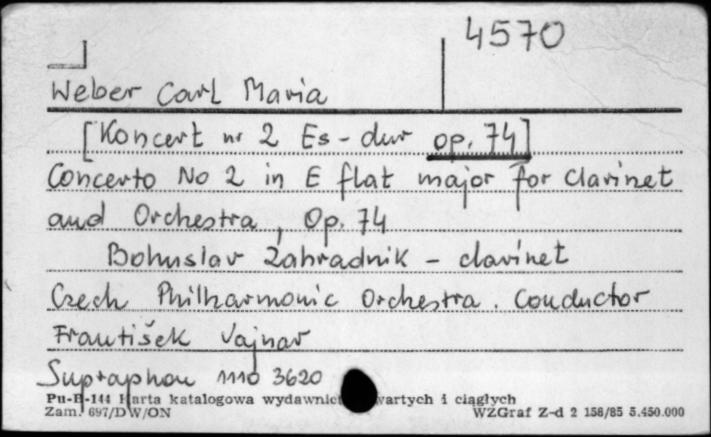 4570
Weber Carl Maria
[Koncert nr 2 Es-dur op. 74]
Concerto No 2 in E flat major for Clarinet
and Orchestra, Op. 74
Bohuslav Zahradnik - clarinet
Czech Philharmonic Orchestra. Conductor
František Vajnar
Supraphon 1110 3620
Pu-B-144 Karta katalogowa wydawnict wartych i ciągłych
Zam. 697/DW/ON WZGraf Z-d 2 158/85 5.450.000